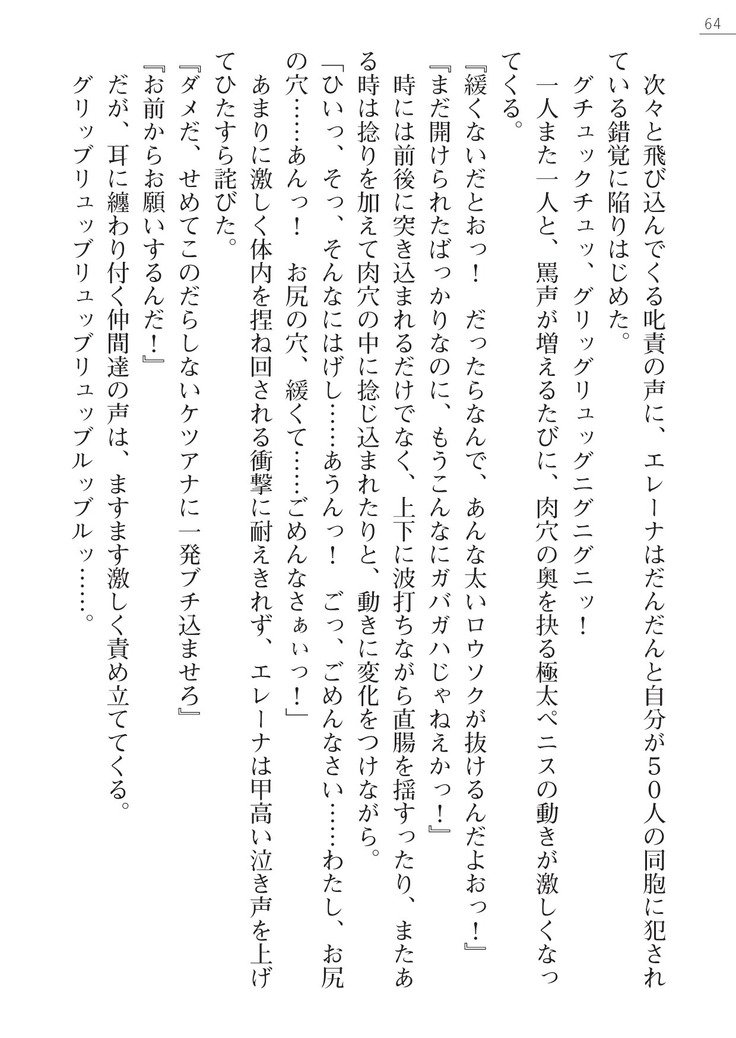 64
次々と飛び込んでくる叱責の声に、エレーナはだんだんと自分が５０人の同胞に犯され
ている錯覚に陥りはじめた。
グチュックチュッ、グリッグリュッグニグニグニッ！
一人また一人と、罵声が増えるたびに、肉穴の奥を抉る極太ペニスの動きが激しくなっ
てくる。
『緩くないだとおっ！　だったらなんで、あんな太いロウソクが抜けるんだよおっ！』
『まだ開けられたばっかりなのに、もうこんなにガバガハじゃねえかっ！』
時には前後に突き込まれるだけでなく、上下に波打ちながら直腸を揺すったり、またあ
る時は捻りを加えて肉穴の中に捻じ込まれたりと、動きに変化をつけながら。
「ひいっ、そっ、そんなにはげし……あうんっ！　ごっ、ごめんなさい……わたし、お尻
の穴……あんっ！　お尻の穴、緩くて……ごめんなさぁぃっ！」
あまりに激しく体内を捏ね回される衝撃に耐えきれず、エレーナは甲高い泣き声を上げ
てひたすら詫びた。
『ダメだ、せめてこのだらしないケツアナに一発ブチ込ませろ』
『お前からお願いするんだ！』
だが、耳に纏わり付く仲間達の声は、ますます激しく責め立ててくる。
グリッブリュッブリュッブリュッブルッブルッ……。